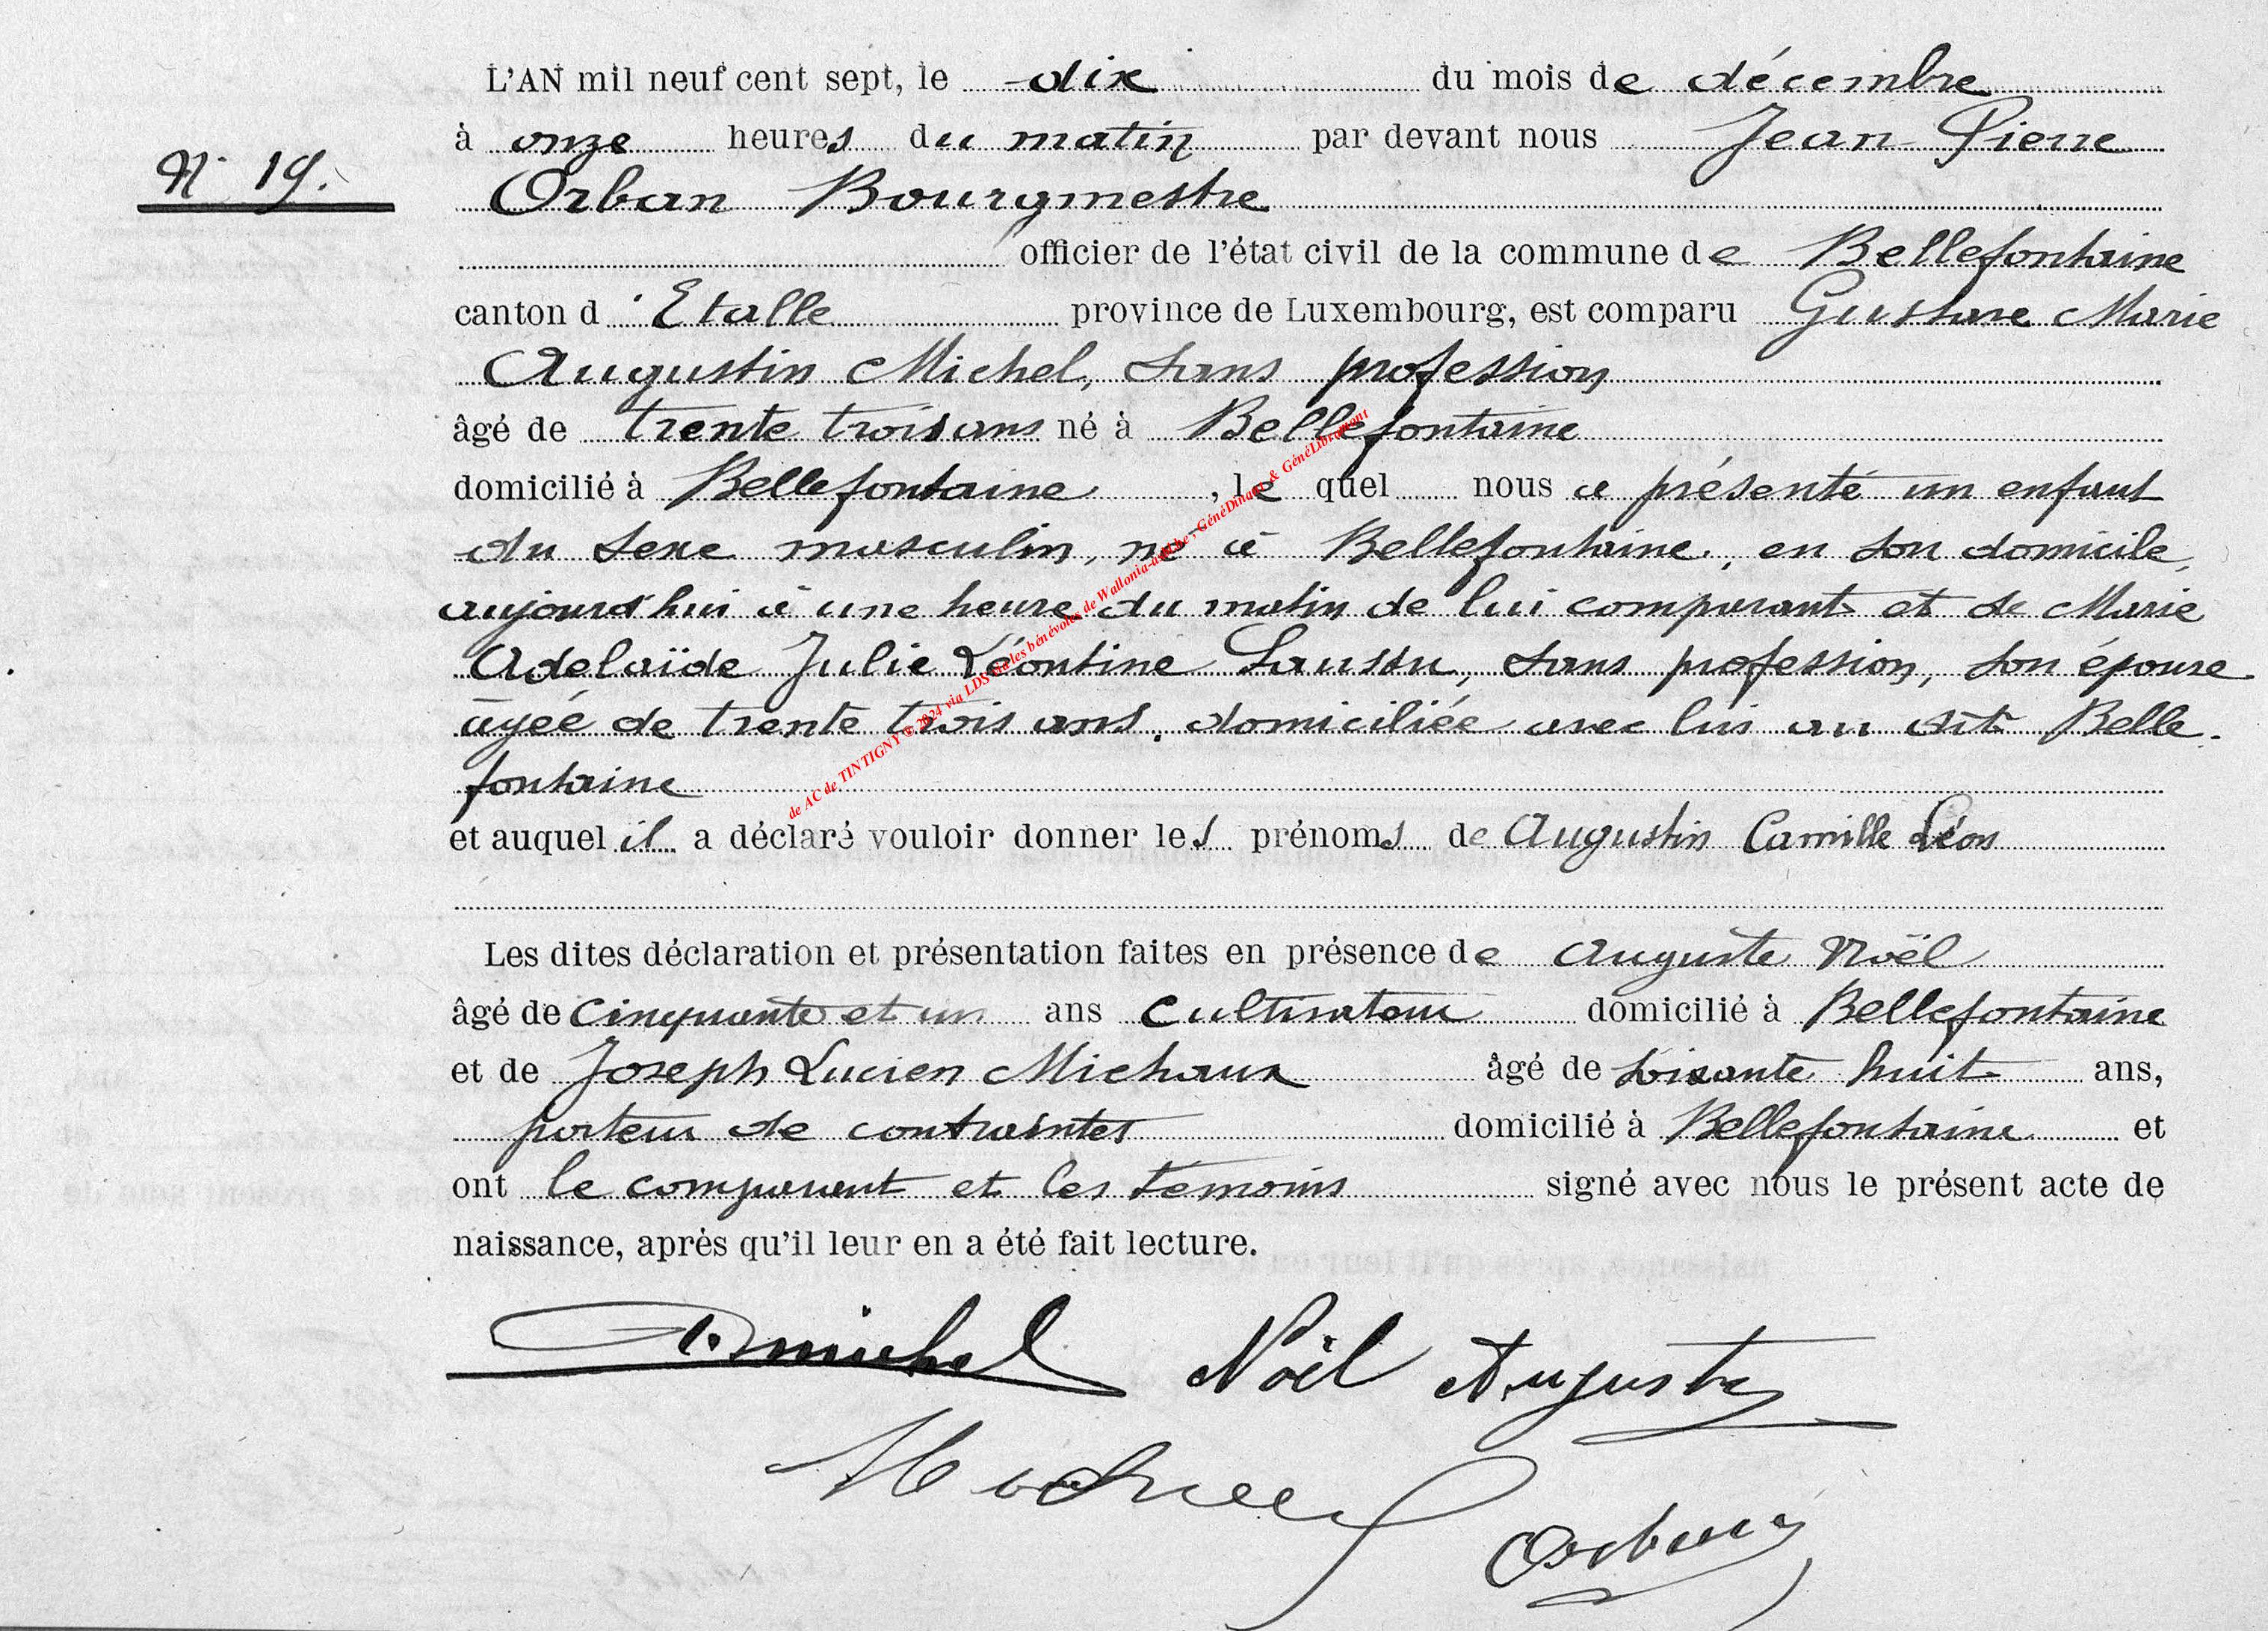 L'AN mil neuf cent sept, le dix du mois de décembre
à onze heures du matin par devant nous Jean Pierre
N° 19.
Orban Bourgmestre
officier de l'état civil de la commune de Bellefontaine
canton d'Etalle province de Luxembourg, est comparu Gustave Marie
Augustin Michel, sans profession
âgé de trente trois ans né à Bellefontaine
domicilié à Bellefontaine, le quel nous a présenté un enfant
du sexe masculin, né à Bellefontaine, en son domicile,
aujourd'hui à une heure du matin de lui comparant et de Marie
Adelaïde Julie Léontine Saussu, sans profession, son épouse
âgée de trente trois ans, domiciliée avec lui au dit Belle-
fontaine
et auquel il a déclaré vouloir donner les prénoms de Augustin Camille Léon
Les dites déclaration et présentation faites en présence de Auguste Noël
âgé de cinquante et un ans cultivateur domicilié à Bellefontaine
et de Joseph Lucien Michaux âgé de soixante huit ans,
porteur de contraintes domicilié à Bellefontaine et
ont le comparant et les témoins signé avec nous le présent acte de
naissance, après qu'il leur en a été fait lecture.
michel Noël Auguste
Orban
de AC de TINTIGNY © 2024 via LDS & les bénévoles de Wallonia-asbl.be : GénéDinant & GénéLibramont